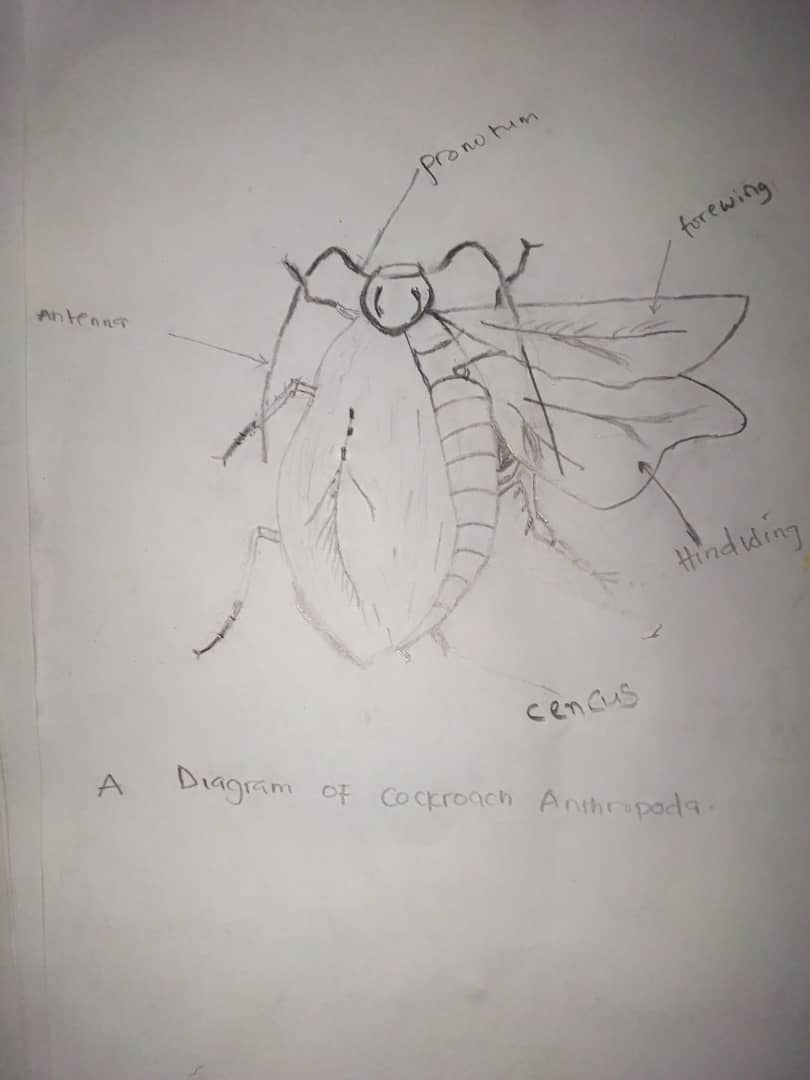 pronotum
forewing
Antenna
Hindwing
cencus
A Diagram of Cockroach Anthropoda.